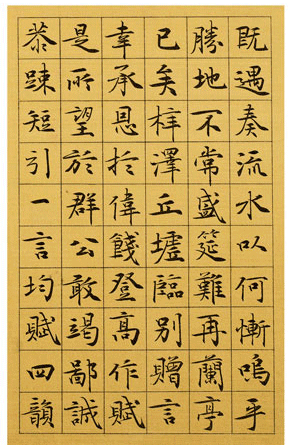 既遇奏流水以何慚嗚乎
勝地不常盛筵難再蘭亭
已矣梓澤丘墟臨別贈言
幸承恩扵偉餞登高作賦
是所望於群公敢竭鄙誠
恭踈短引一言均賦四韻